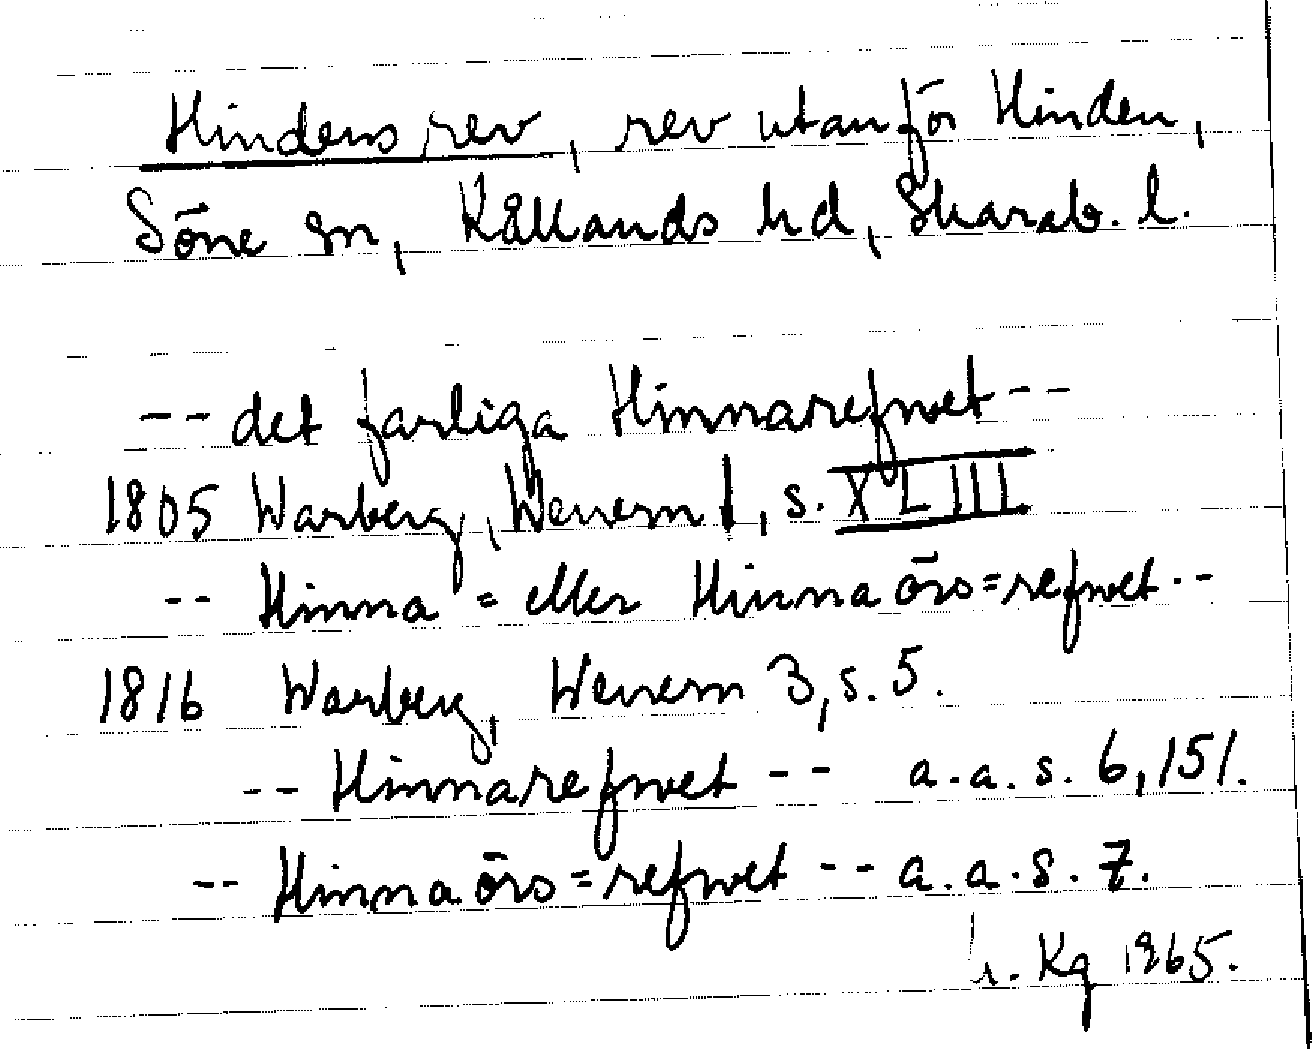 Hindens rev, rev utanför Hinden,
Söne sn, Kållands hd, Skarab. l.
-- det farliga Hinnarefwet --
1805 Warberg, Wenern 1, s. XLIII
-- Hinna = eller Hinnaörs=refwet --
1816 Warberg, Wenern 3, s. 5.
-- Hinnarefwet -- a.a. s. 6, 151.
-- Hinnaörs=refwet -- a.a. s. 7.
Kg 1965.